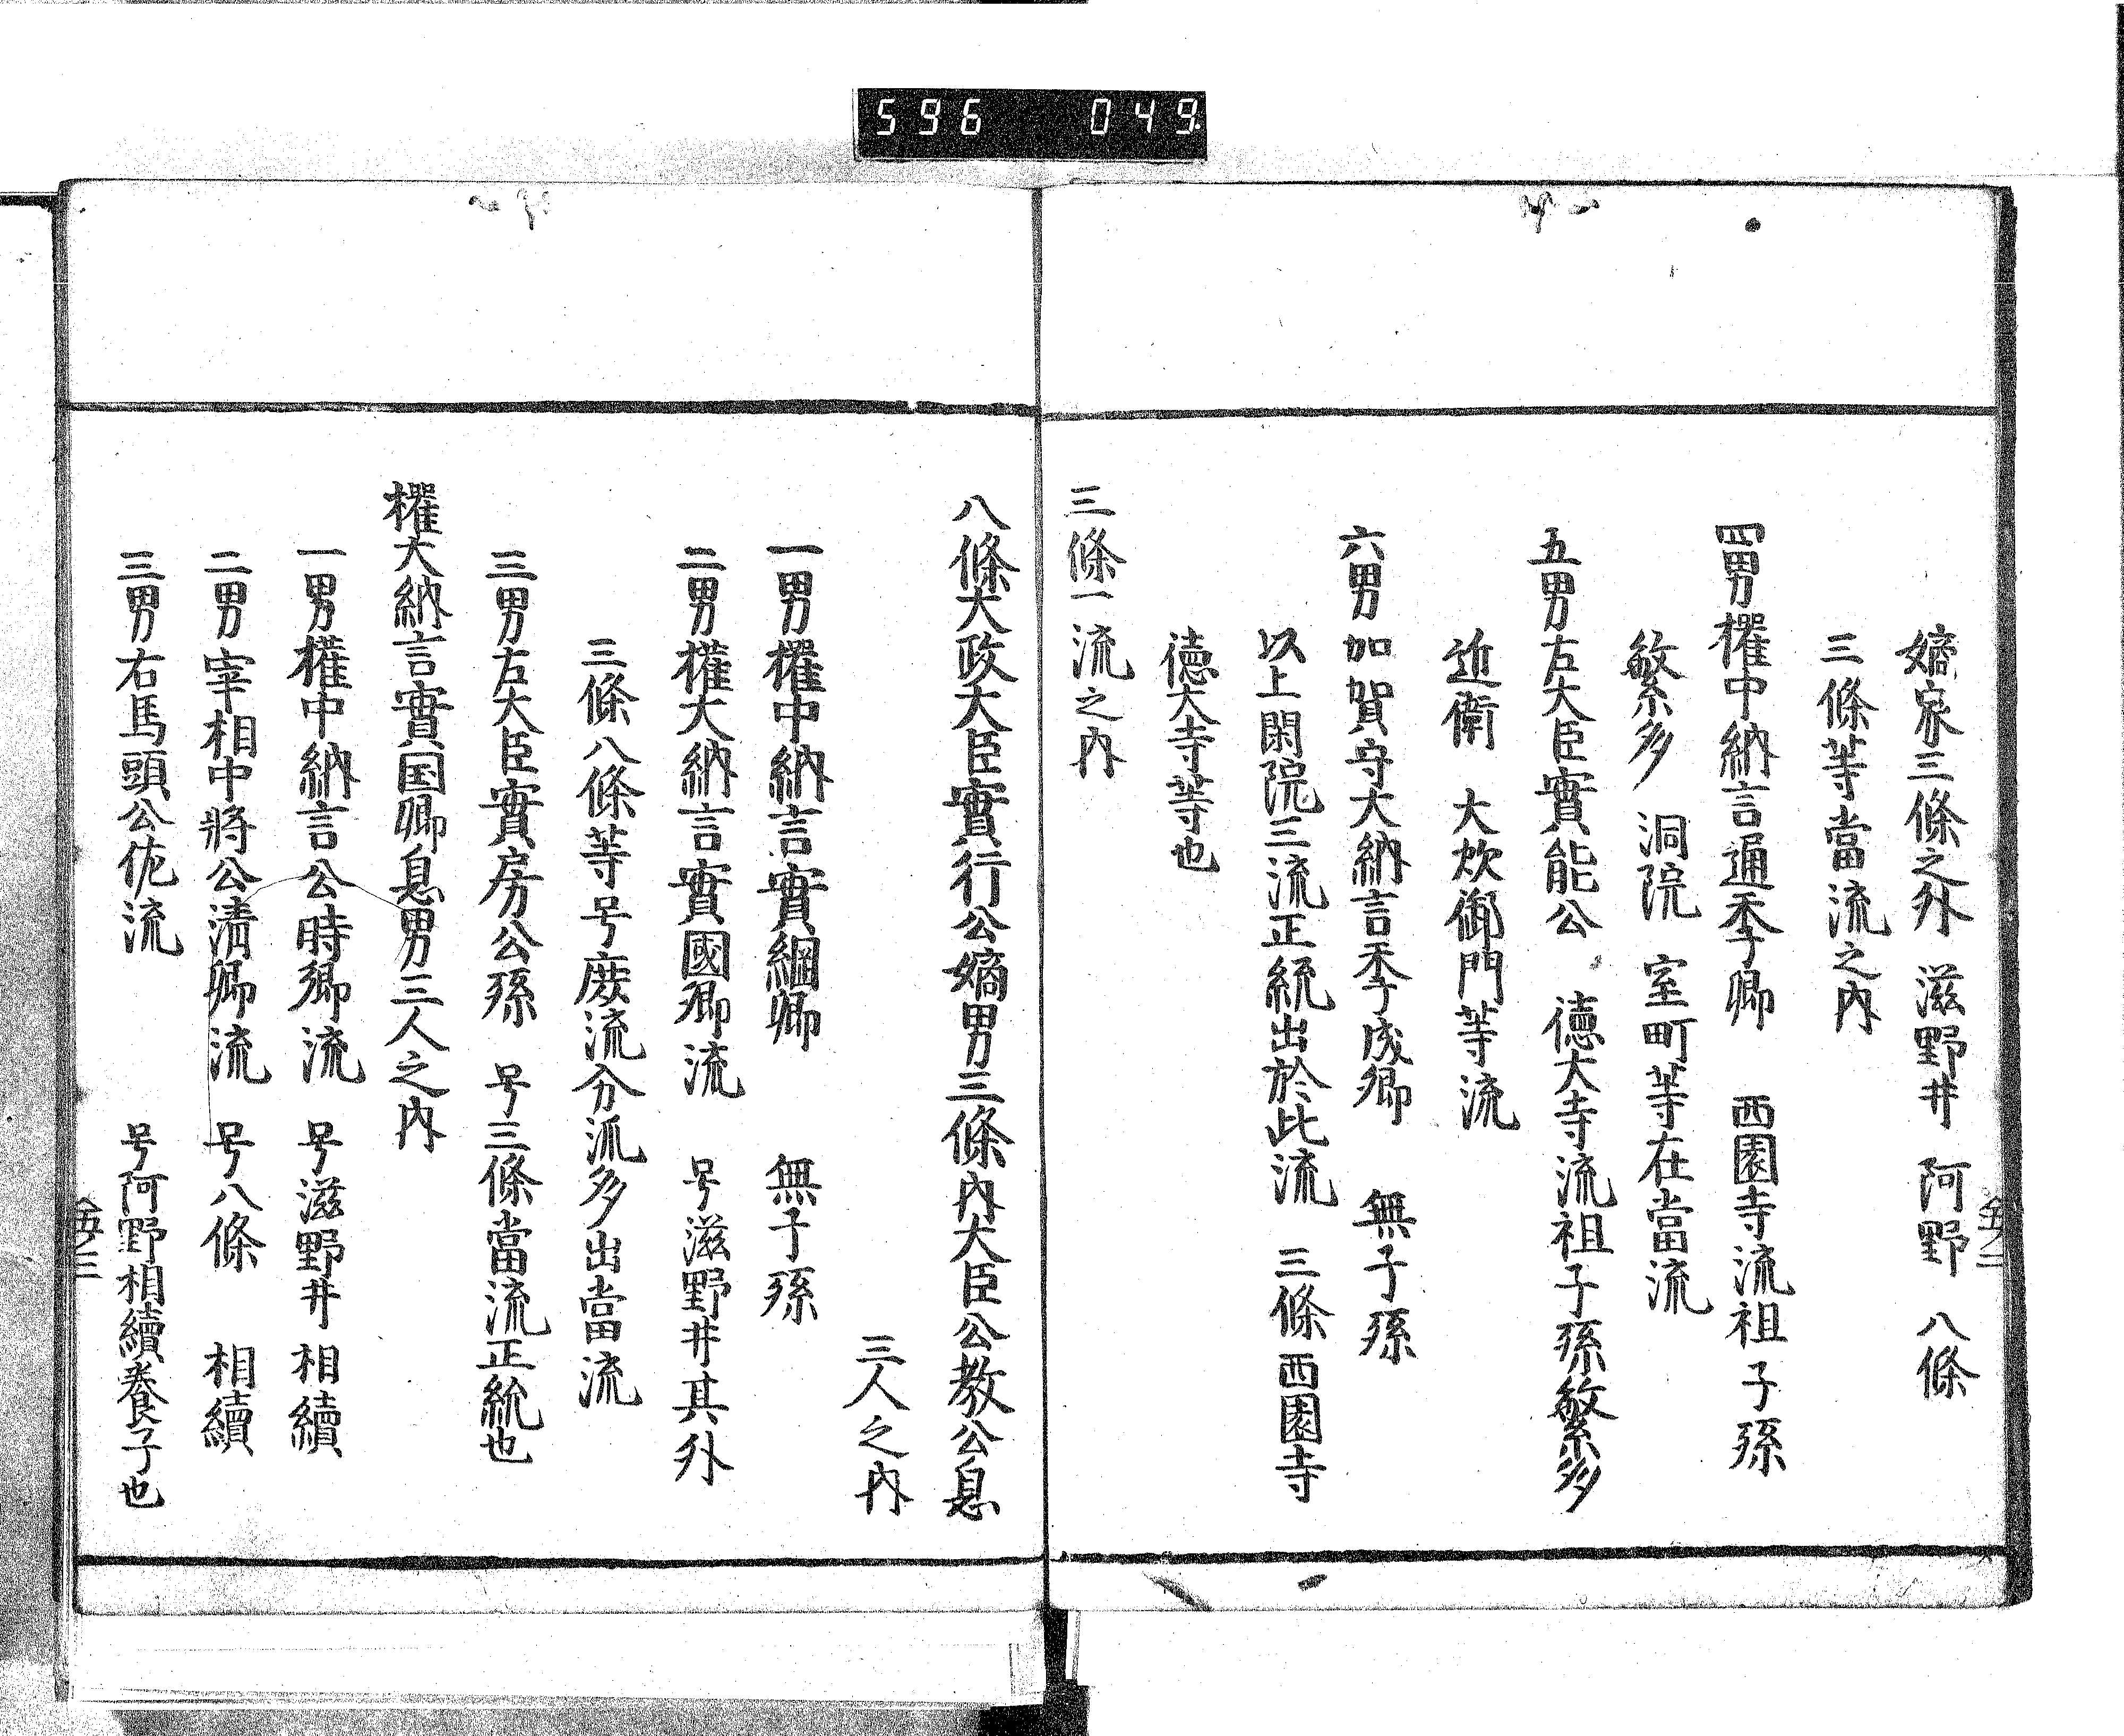 596 049
嫡家三條之外 滋野井 阿野 八條
三條等當流之內
四男權中納言通季卿 西園寺流祖子孫
繁多 洞院 室町等在當流
五男左大臣實能公 德大寺流祖子孫繁多
近衛 大炊御門等流
六男加賀守大納言季成卿 無子孫
以上閑院三流正統出於此流 三條西園寺
德大寺等也
三條一流之內
八條大政大臣實行公嫡男三條內大臣公教公息
三人之內
一男權中納言實綱卿 無子孫
二男權大納言實國卿流 号滋野井其外
三條八條等号庶流分流多出當流
三男左大臣實房公孫 号三條當流正統也
權大納言實国卿息男三人之內
一男權中納言公時卿流 号滋野井 相續
二男宰相中將公淸卿流 号八條 相續
三男右馬頭公佐流 号阿野相續養子也